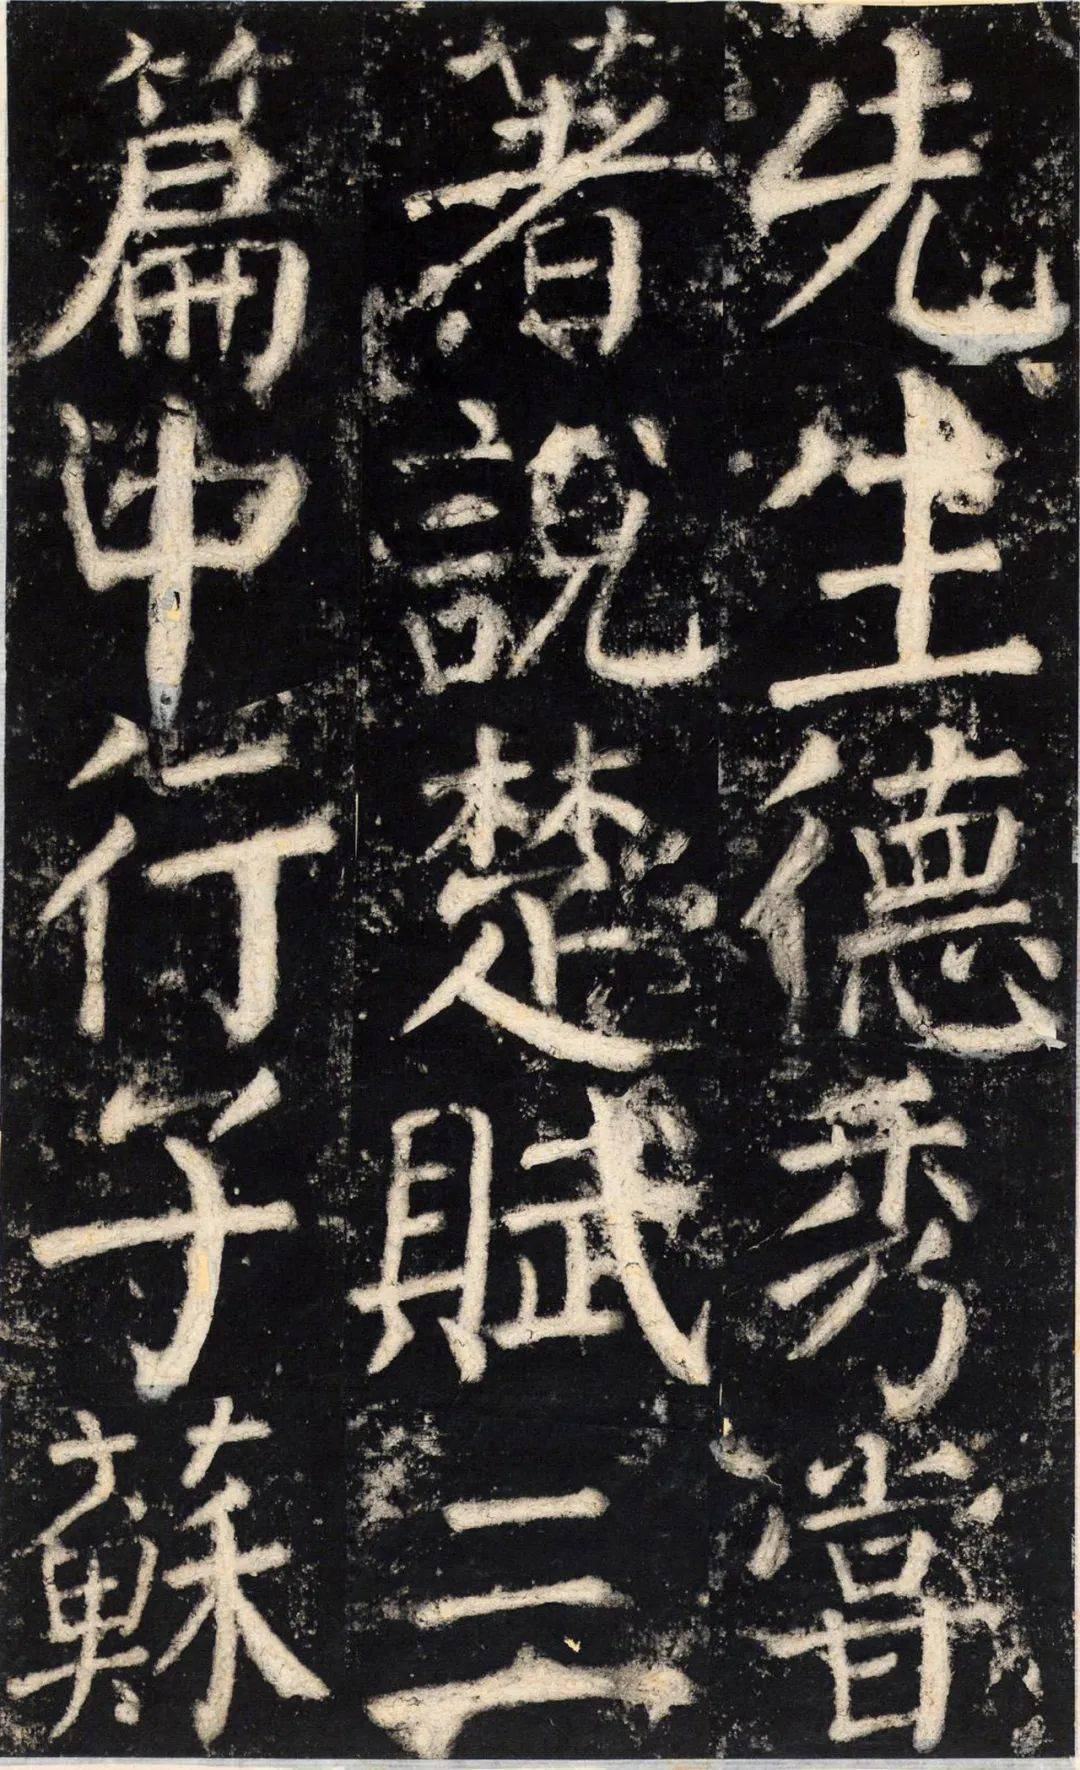 先生德秀嘗
著說楚賦三
篇中行子蘇